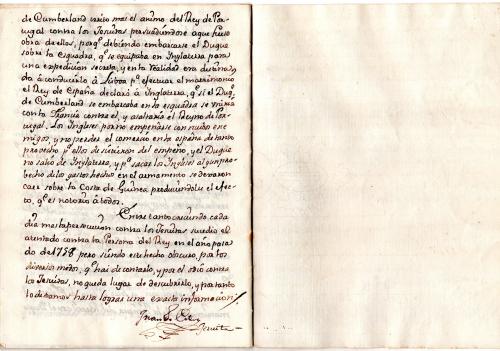 de Cumberland irrito mas el animo del Rey de Por-
tugal contra los Jesuitas persuadiendose a que fuese
obra de ellos, porq.e debiendo embarcarse el Duque
sobre la Esquadra, q.e se equipaba en Inglaterra para
una expedicion secreta, y en la realidad era destina-
da á conducirlo à Lisboa p.a efectuar el matrimonio
el Rey de España declaró à Inglaterra, q.e si el Duq.e
de Cumberland se embarcaba en la esquadra se uniria
con la Francia contra el, y asaltaria el Reyno de Por-
tugal. Los Ingleses por no empeñarse con nuebos ene
migos, y no perder el comercio en la españa de tanto
probecho p.a ellos desistieron del empeño, y el Duque
no salió de Inglaterra, y p.a sacar los Ingleses algun pro-
becho de los gastos hechos en el armamento se dexaron
caer sobre la Costa de Guinea produciendolu el efec-
to, q.e es notorio à todos.
Entre tanto creciendo cada
dia mas la persecucion contra los Jesuitas sucedio el
atentado contra la Persona del Rey en el año pasa
do de 1758 pero siendo este hecho obscuro por los
diversos modos, q.e hai de contarlo, y por el odio contra
los Jesuitas, no queda lugar de descubrirlo, y por tanto
lo dexamos hasta lograr una exacta informacion
Juan
Jesuita